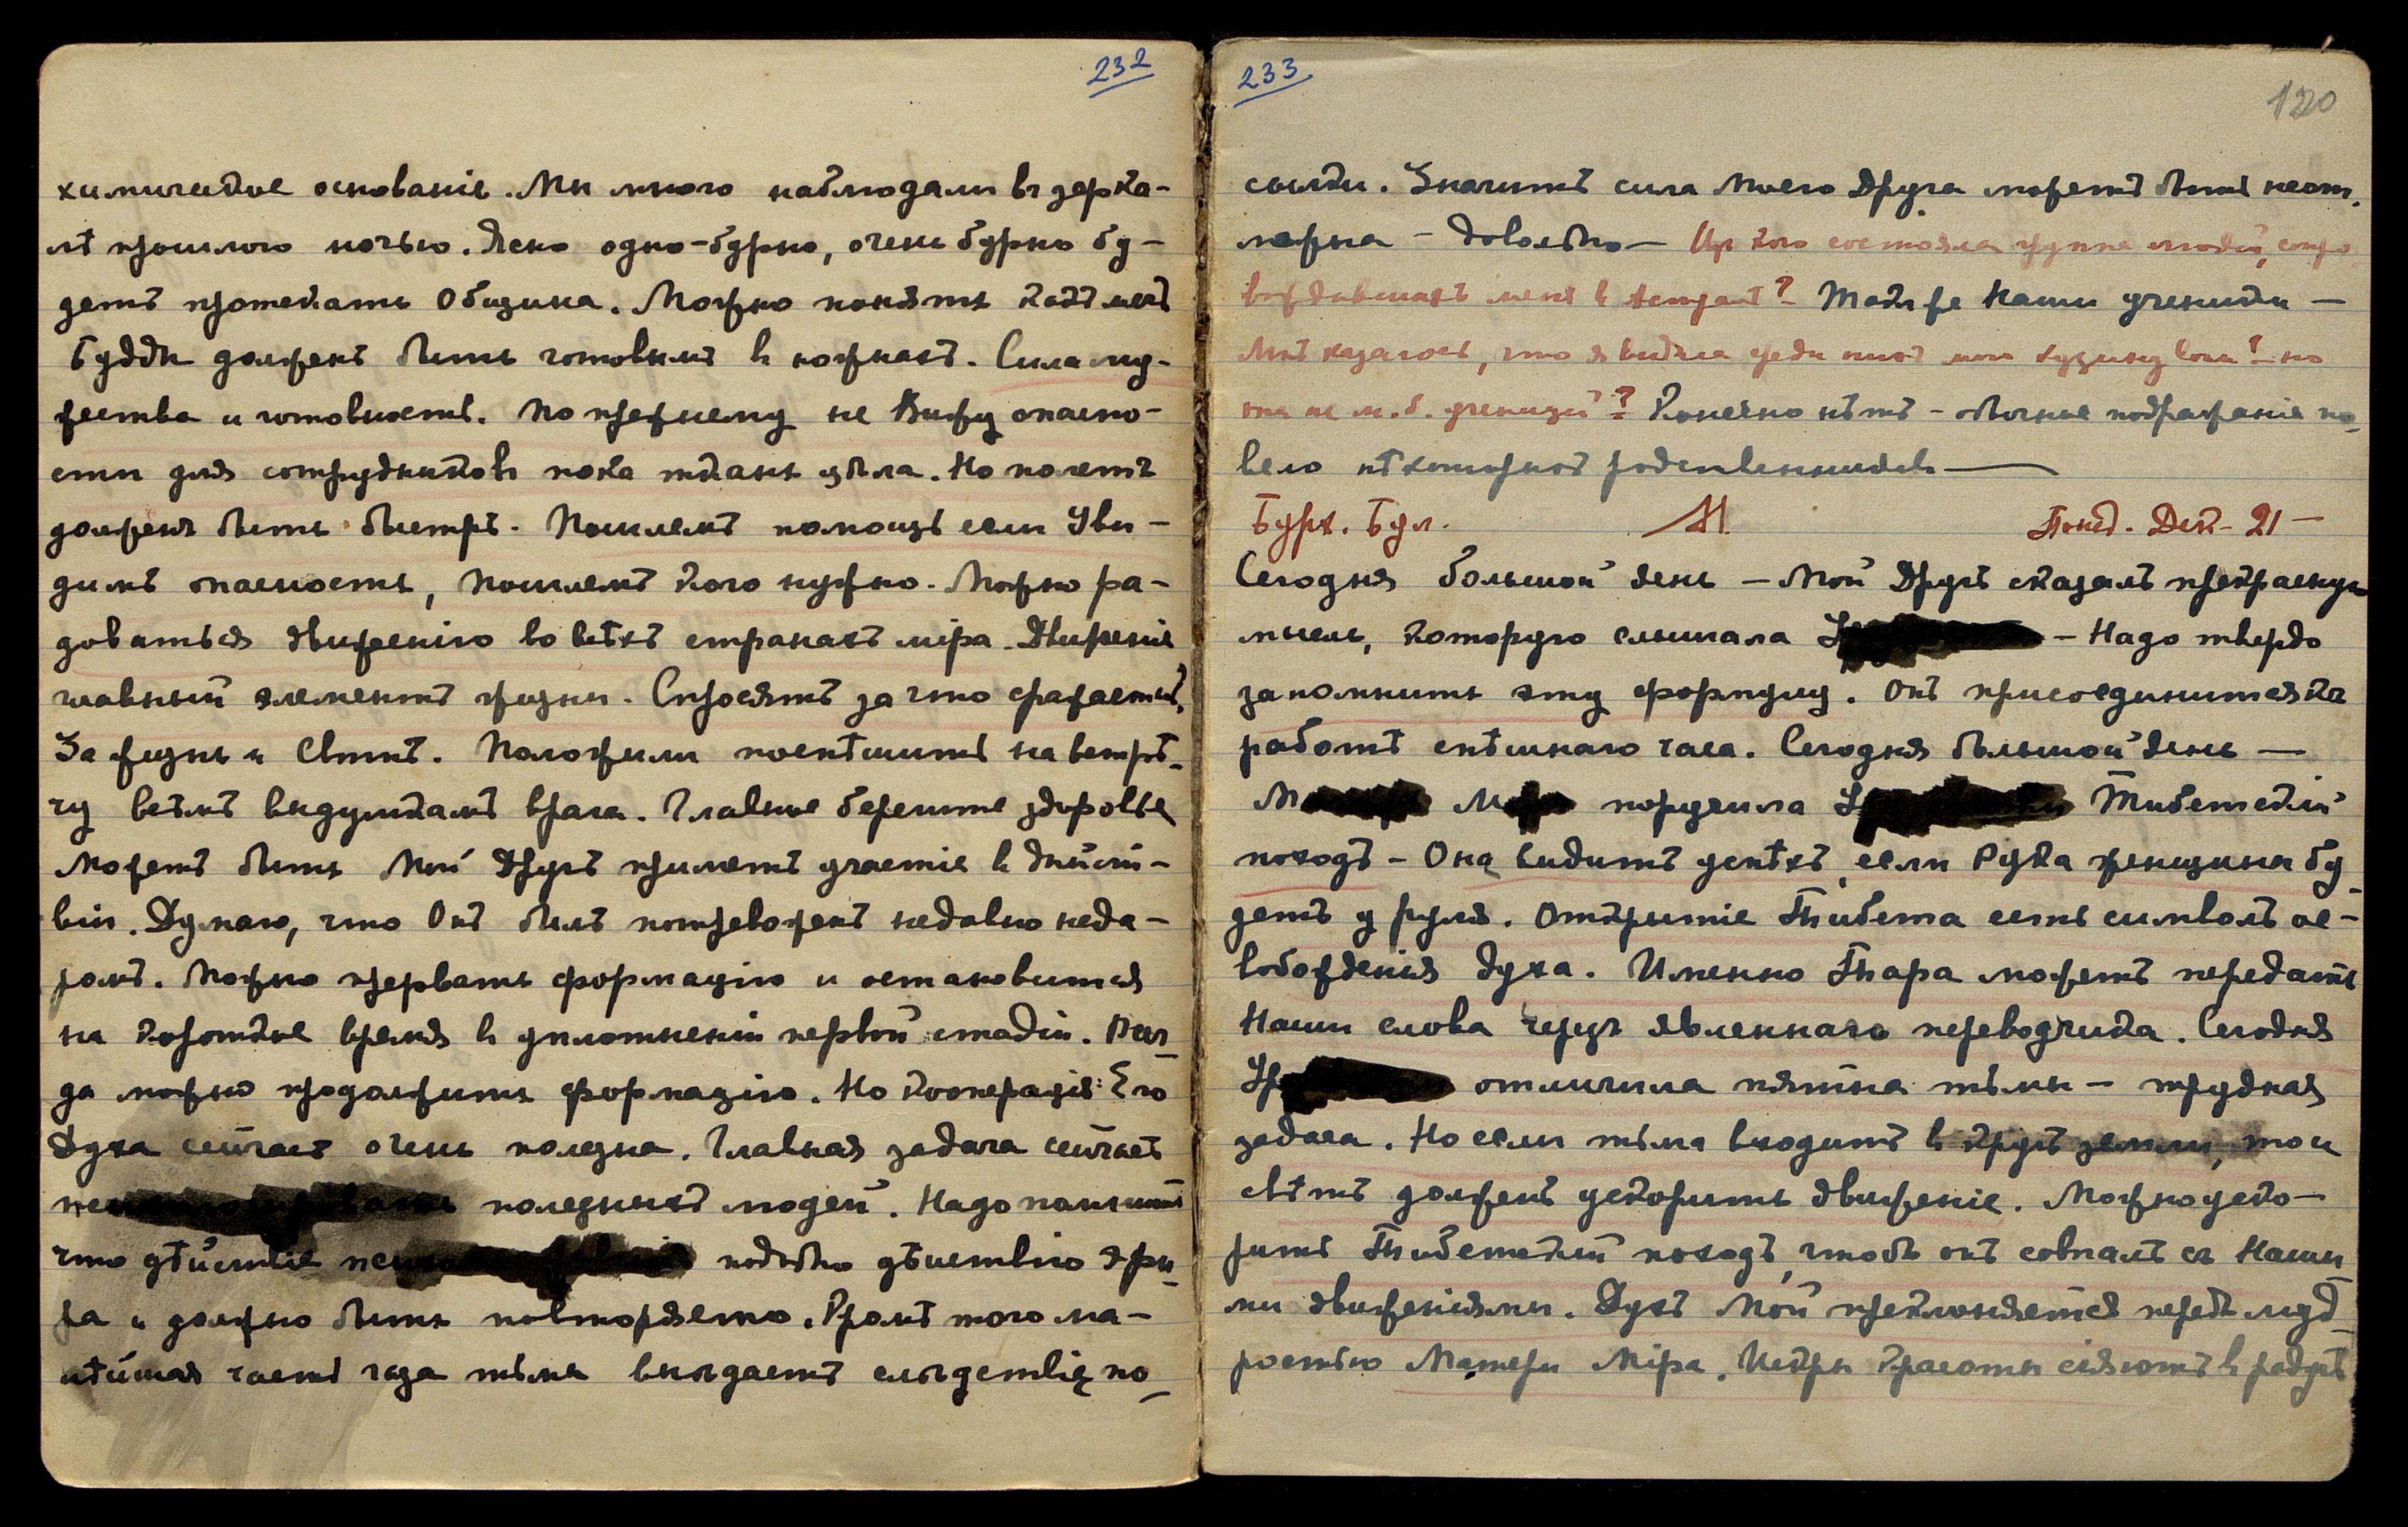 232
химическое основаніе. Мы много наблюдали въ зерка-
лѣ прошлою ночью. Ясно одно - бурно, очень бурно бу-
детъ протекать Община. Можно понять какъ мечъ
Будды долженъ быть готовымъ в ножнахъ. Сила му-
жества и готовность. По прежнему не Вижу опасно-
сти для сотрудниковъ пока ткань цѣла. Но полетъ
долженъ быть быстръ. Пошлемъ помощь если Уви-
димъ опасность, Пошлемъ кого нужно. Можно ра-
доваться движенію во всѣхъ странахъ міра. Движеніе
главный элементъ жизни. Спросятъ за что сражаетесь,
За жизнь и Свѣтъ. Положили поспѣшить на встрѣ-
чу всѣмъ выдумкамъ врага. Главное берегите здоровье
Можетъ быть Мой Другъ приметъ участіе в дѣйст-
віи. Думаю, что Онъ былъ потревоженъ недавно неда-
ромъ. Можно прервать формацію и остановиться
на короткое время в уплотненіи первой стадіи. Все-
да можно продолжить формацію. Но кооперація Его
Духа сейчасъ очень полезна. Главная задача сейчасъ
полезныхъ людей. Надо помнить
что дѣйствіе подобно дѣйствію эфи-
ра и должно быть повторяемо. Кромѣ того ма-
лѣйшая часть газа тьмы вызываетъ слѣдствіе по-
233
120
сылки. Значитъ сила Моего Друга можетъ быть неот-
ложна - довольно - Изъ кого состояла группа людей, сопро
вождавшихъ меня в Астралѣ? Также Наши ученики -
Мнѣ казалось, что я видѣла среди нихъ мою кузину но
она не м. б. ученицей? Конечно нѣтъ - обычное подражаніе по-
вело нѣкоторыхъ родственниковъ
Бурх. Бул. М. Понед. Дек. 21 -
Сегодня большой день - Мой Другъ сказалъ прекрасную
мысль, которую слышала - Надо твердо
запомнить эту формулу. Онъ присоединится къ
работѣ спѣшнаго часа. Сегодня большой день -
М М поручила Тибетскій
походъ - Она видитъ успѣхъ, если Рука женщины бу-
детъ у руля. Открытіе Тибета есть символъ ос-
вобожденія духа. Именно Тара можетъ передать
Наши слова черезъ явленнаго переводчика. Сегодня
Ур отличила пятна тьмы - трудная
задача. Но если тьма входитъ в кругъ земли, то и
свѣтъ долженъ ускорить движеніе. Можно уско-
рить Тибетскій походъ, чтобъ онъ совпалъ съ Наши
ми движеніями. Духъ Мой преклоняется передъ муд-
ростью Матери Міра. Искры Красоты сіяютъ в радугѣ